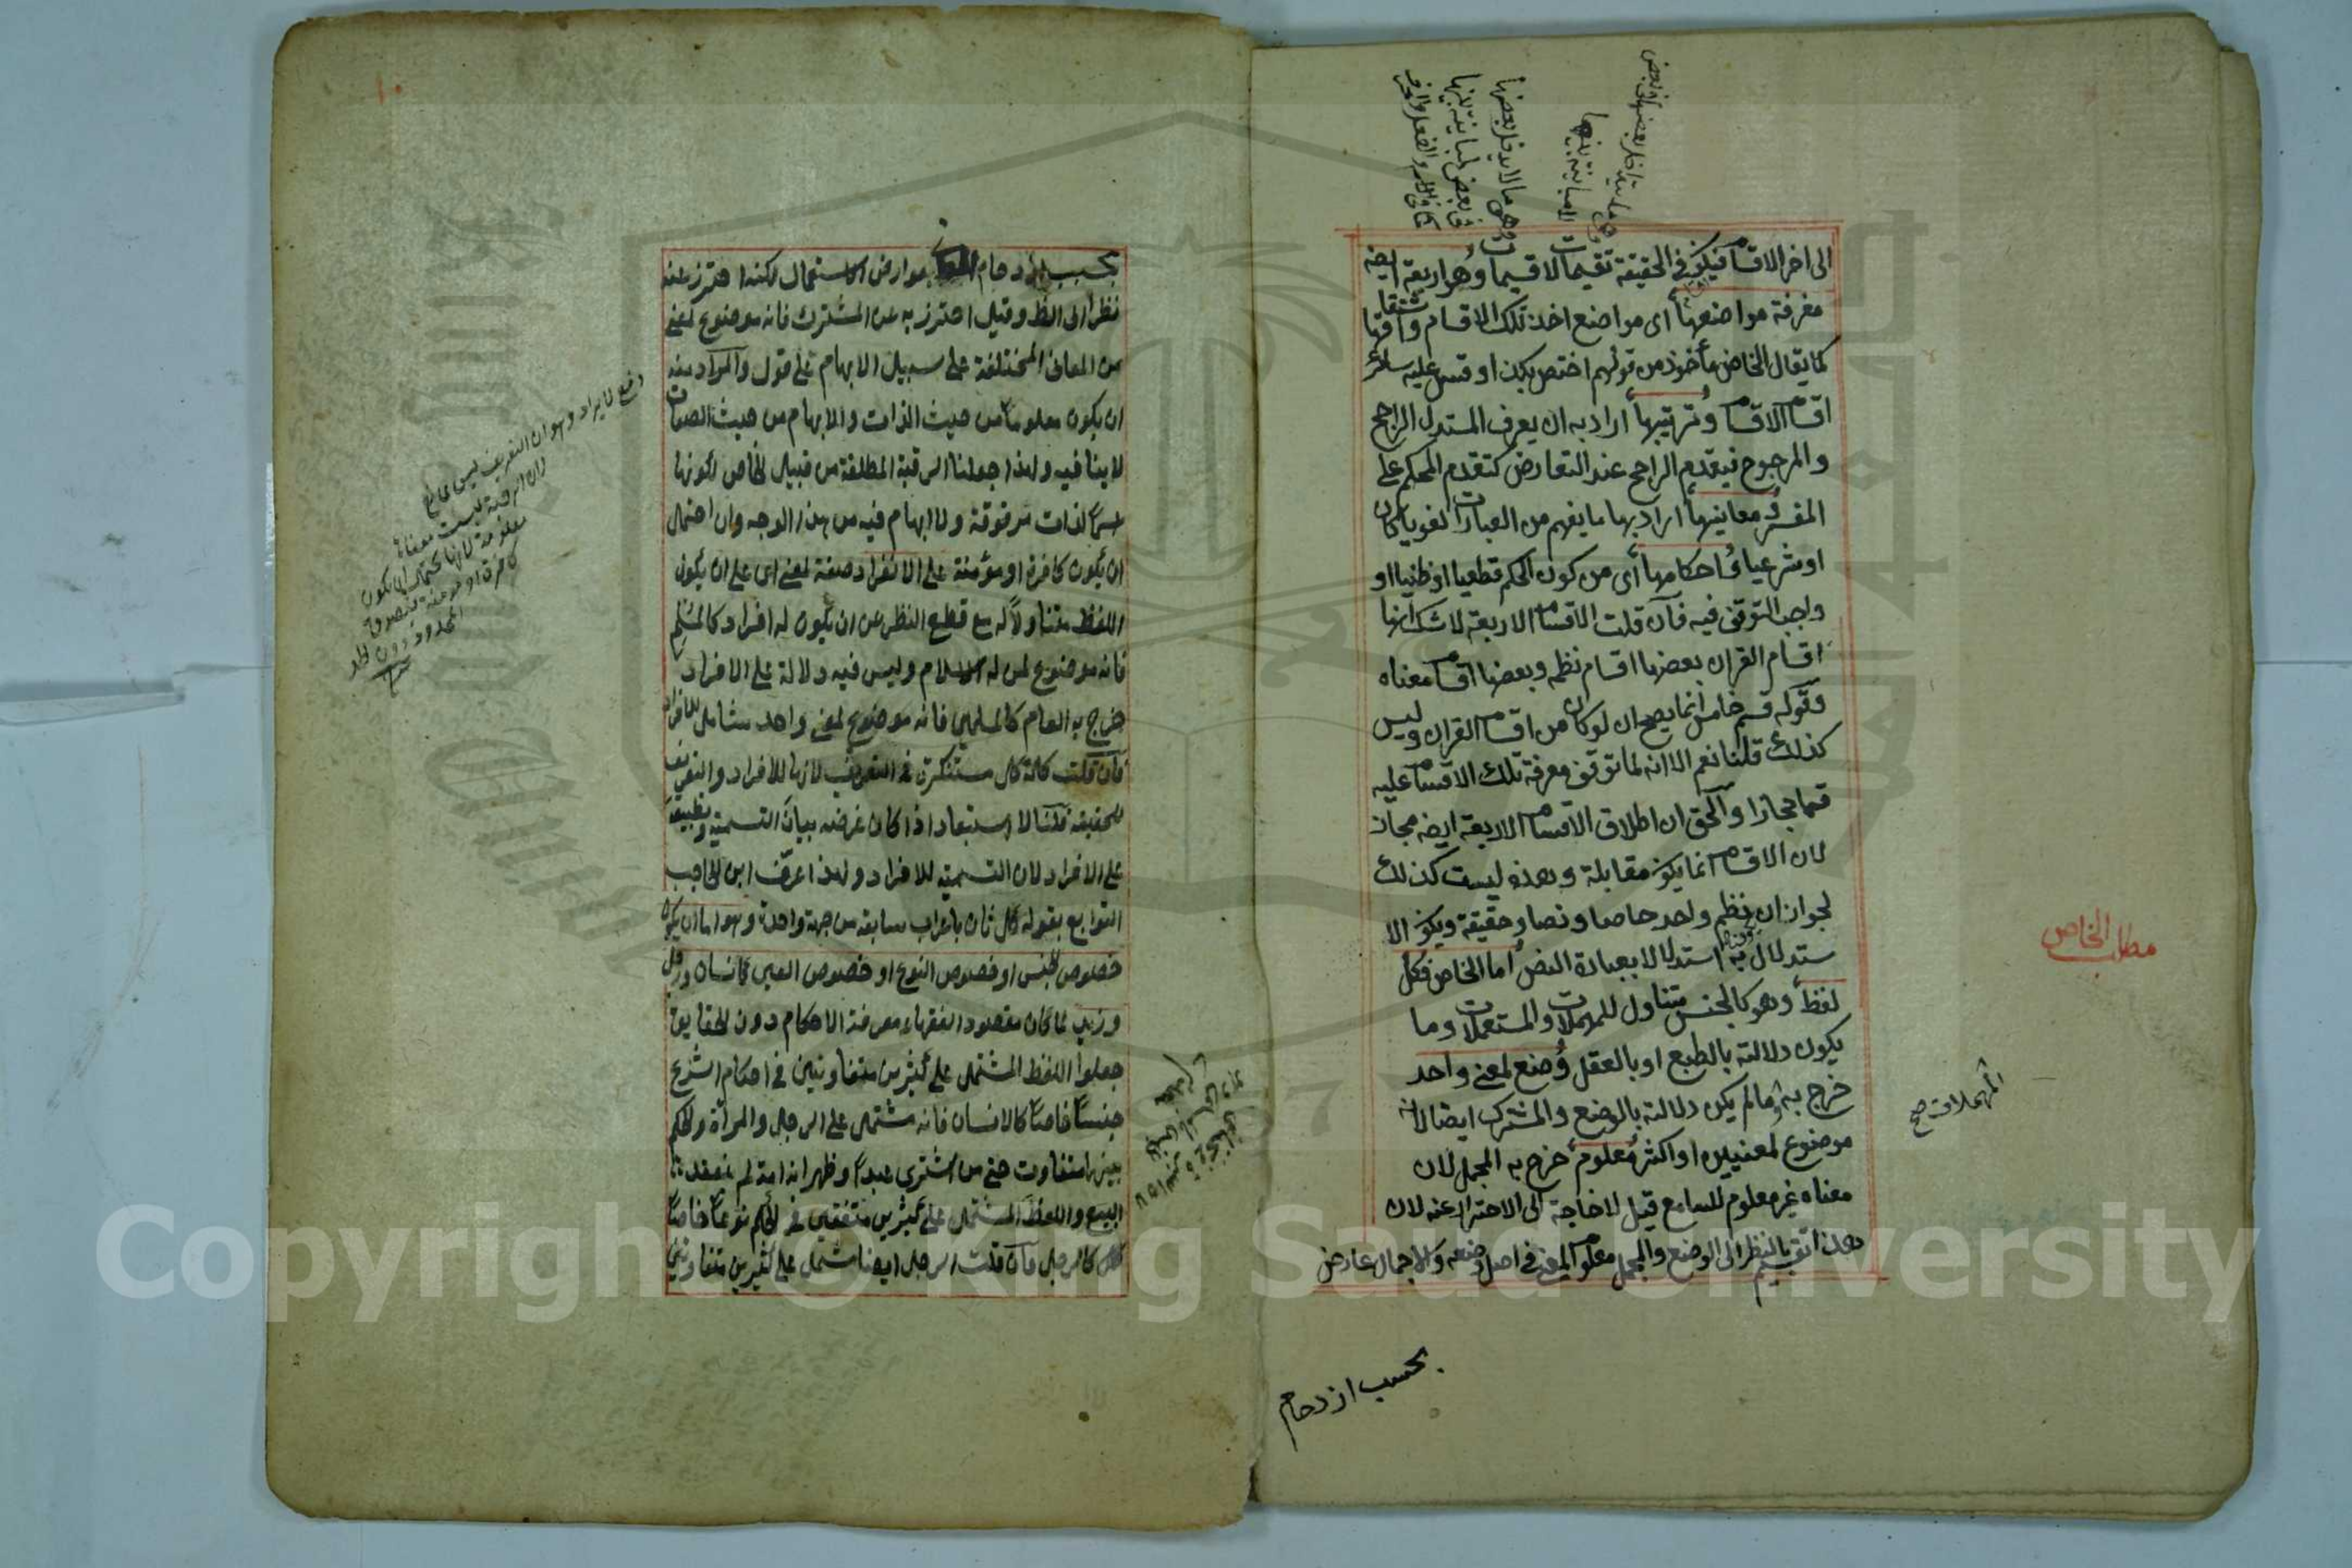 الى اخر الاقسام فيكون في الحقيقة تقسيمات لا قسيمات وهو اربعة ايضه
معرفة مواضعها اى مواضع اخذ تلك الاقسام واشتقاقها
كما يقال الخاص مأخوذ من قولهم اختص بكذا وقس عليه سائر
اقسام الاقسام وترتيبها اراد به ان يعرف المستدل الراجح
والمرجوح فيقدم الراجح عند التعارض كتقدم المحكم على
المفسر ومعانيها اراد بها ما يفهم من العبارات لغويا كان
او شرعيا واحكامها أى من كون الحكم قطعيا او ظنيا او
واجب التوقف فيه فان قلت الاقسام الاربعة لا شك انها
اقسام القران بعضها اقسام نظمه وبعضها اقسام معناه
وقوله قسم خامس انما يصح ان لو كان من اقسام القران وليس
كذلك قلنا نعم الا انه لما توقف معرفة تلك الاقسام عليه
قسما مجازا والحق ان اطلاق الاقسام الاربعة ايضه مجاز
لان الاقسام انما يكون مقابلة وهذه ليست كذلك
لجواز ان نظم واحد خاصا ونصا وحقيقة ويكون الا
ستدلال به استدلالا بعبارة النص اما الخاص فكل
لفظ وهو كالجنس متناول للمهملات والمستعملات وما
يكون دلالته بالطبع او بالعقل وضع لمعنى واحد
خرج به ما لم يكن دلالته بالوضع والمشترك ايضا لانه
موضوع لمعنيين او اكثر معلوم خرج به المجمل لان
معناه غير معلوم للسامع قيل لا حاجة الى الاحتراز عنه لان
هذا تقسيم بالنظر الى الوضع والمجمل معلوم المعنى في اصل وضعه والاجمال عارض
بحسب ازدحام
مطلب الخاص
المهملات صح
بحسب ازدحام بعوارض الاستعمال لكنه احترز عنه
نظرا الى اللفظ وقيل احترز به عن المشترك فانه موضوع لمعنى
من المعانى المختلفة على سبيل الابهام على قول والمراد منه
ان يكون معلوما من حيث الذات والابهام من حيث الصفات
لا ينافيه ولهذا جعلنا الرقبة المطلقة من قبيل الخاص لكونها
اسما لذات مرقوقة ولا ابهام فيه من هذا الوجه وان احتمل
ان يكون كافرة او مؤمنة على الانفراد صفة لمعنى اى على ان يكون
اللفظ متناولا له مع قطع النظر عن ان يكون له افراد كالمسلم
فانه موضوع لمن له الاسلام وليس فيه دلالة على الافراد
خرج به العام كالمسلمين فانه موضوع لمعنى واحد شامل للافراد
فان قلت كلمة كل مستنكرة في التعريف لانها للافراد والتعريف
للحقيقة قلنا لا استبعاد اذا كان غرضه بيان التسمية وتطبيقه
على الافراد لان التسمية للافراد ولهذا عرّف ابن الحاجب
التوابع بقوله كل ثان باعراب سابقه من جهة واحدة وهو اما ان يكون
خصوص الجنس او خصوص النوع او خصوص العين كانسان ورجل
وزيد لما كان مقصود الفقهاء معرفة الاحكام دون الحقايق
جعلوا اللفظ المشتمل على كثيرين متفاوتين في احكام الشرع
جنسا خاصا كالانسان فانه مشتمل على الرجل والمرأة والحكم
بينهما متفاوت حتى من اشترى عبدا وظهر انه امة لم ينعقد
البيع واللفظ المشتمل على كثيرين متفقين في الحكم نوعا خاصا
كالرجل فان قلت الرجل ايضا مشتمل على كثيرين متفاوتين
دفع لايراد وهو ان التعريف ليس بمانع
لان الرقبة ليست معناها
معلومة لانها تحتمل ان يكون
كافرة او مؤمنة
المحدود دون الحد
Copyright © King Saud University